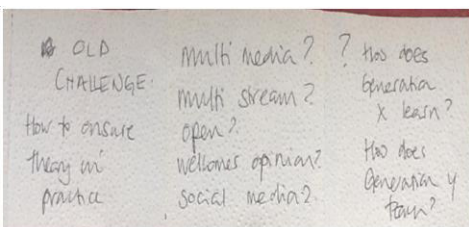 OLD
CHALLENGE.
How to ensure
theory in
practice
multi media?
multi stream?
open?
wellcomes opinion?
social media?
? How does
Generation
X learn?
How does
Generation Y
learn?